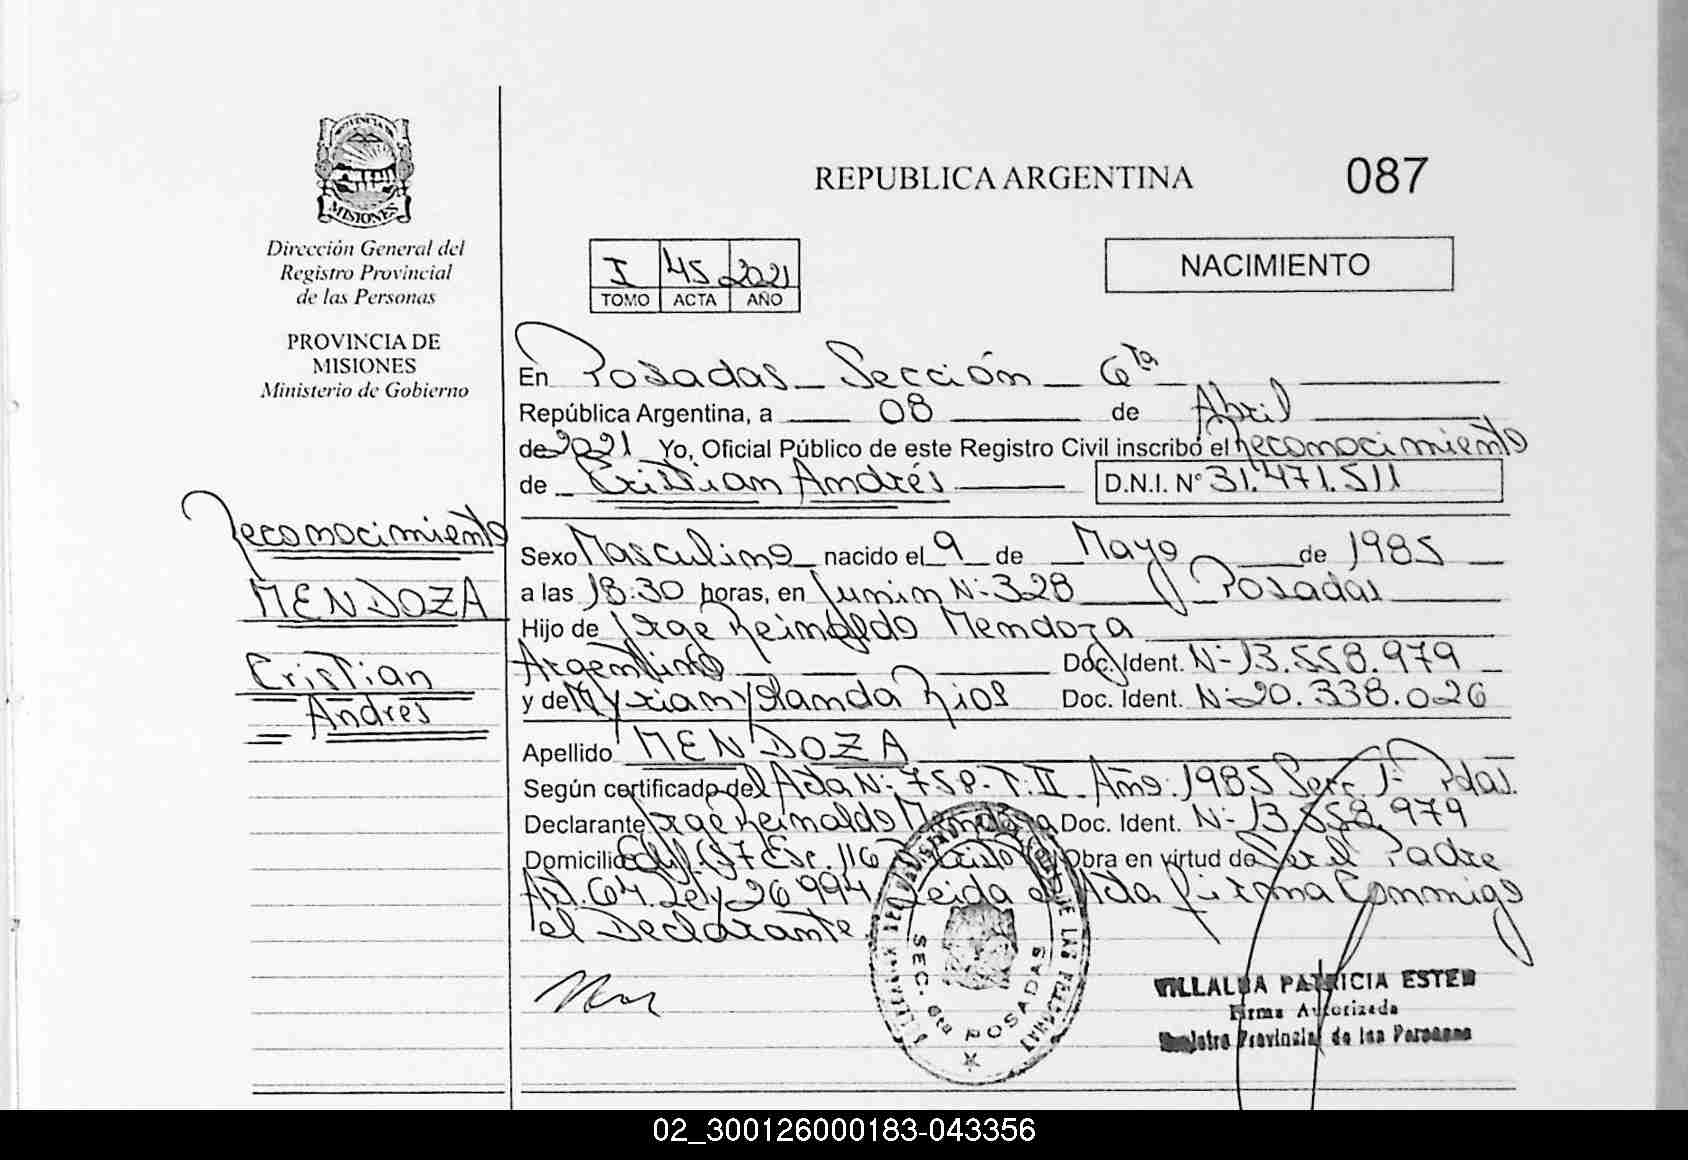 PROVINCIA DE
MISIONES
Dirección General del
Registro Provincial
de las Personas
PROVINCIA DE
MISIONES
Ministerio de Gobierno
Reconocimiento
MENDOZA
Cristian
Andres
REPUBLICA ARGENTINA
087
I 45 2021
TOMO ACTA AÑO
NACIMIENTO
En Posadas - Sección - 6ta
República Argentina, a 08 de Abril
de 2021 Yo, Oficial Público de este Registro Civil inscribo el Reconocimiento
de Cristian Andrés D.N.I. N° 31.471.511
Sexo Masculino nacido el 9 de Mayo de 1985
a las 18:30 horas, en Junin N: 328 Posadas
Hijo de Jorge Reinaldo Mendoza
Argentino Doc. Ident. N- 13.558.979
y de Myrian Yolanda Rios Doc. Ident. N- 20.338.026
Apellido MENDOZA
Según certificado del Acta N: 758- T: II Año: 1985 Secc. 1- Pdas.
Declarante Jorge Reinaldo Mendoza Doc. Ident. N- 13.558.979
Domicilio 116 Obra en virtud de Ser el Padre
Art. 64. Ley 26994 Leida el Acta firma Conmigo
el Declarante.
SEC. 6ta POSADAS
VILLALBA PATRICIA ESTER
Firma Autorizada
Registro Provincial de las Personas
02_300126000183-043356